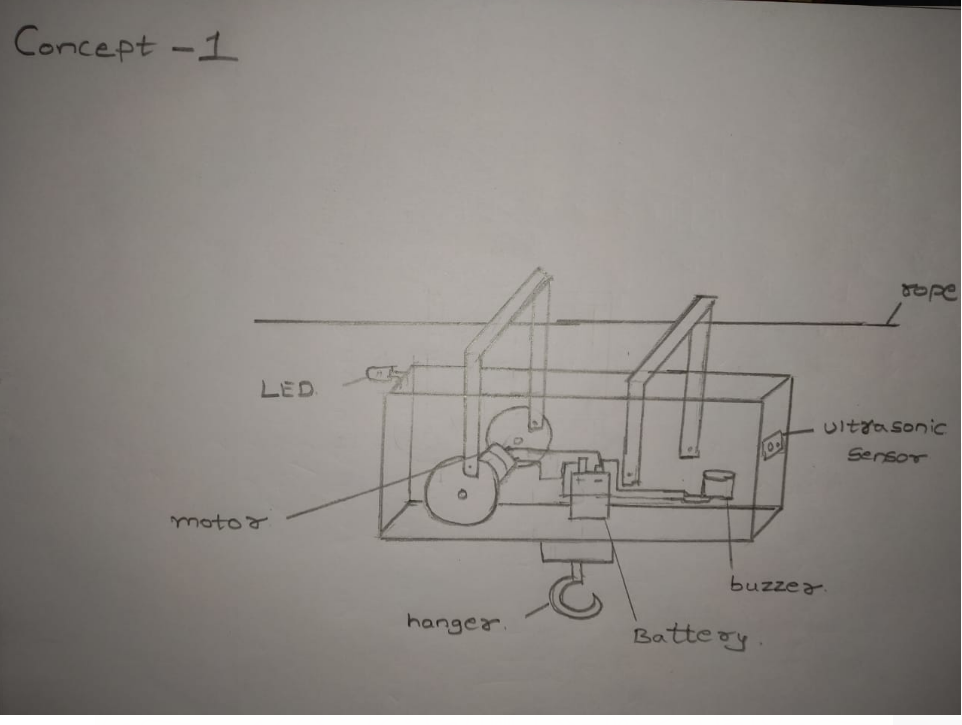 Concept - 1
rope
LED.
ultrasonic
sensor
motor
buzzer.
hanger.
Battery.